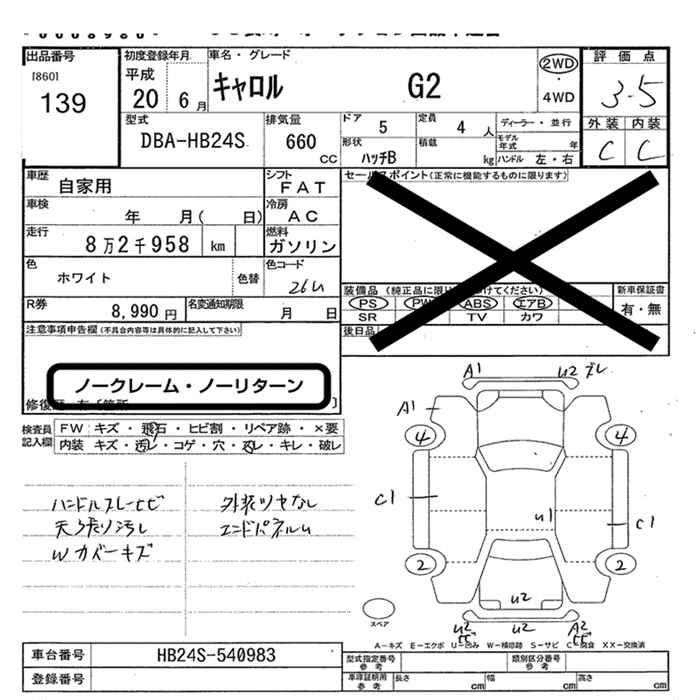 出品番号
[860]
139
初度登録年月
平成
20 6月
車名・グレード
キャロル G2
2WD
・
4WD
評価点
3.5
外装 内装
C C
型式
DBA-HB24S
排気量
660
CC
ドア 5
定員 4 人
ディーラー・並行
形状
ハッチB
積載
kg
モデル年式 年
ハンドル 左・右
車歴
自家用
シフト
FAT
セールスポイント(正常に機能するものに限ります)
車検
年 月( 日)
冷房
AC
走行
8万2千958 km
燃料
ガソリン
色
ホワイト
色替
色コード
26U
R券
8,990円
名変通知期限
月 日
装備品
PS PW ABS エアB
SR TV カワ
新車保証書
有・無
後日品
注意事項申告欄(不具合内容等は具体的に記入して下さい)
ノークレーム・ノーリターン
検査員記入欄
FW キズ・飛石・ヒビ割・リペア跡・×要
内装 キズ・汚レ・コゲ・穴・スレ・キレ・破レ
ハンドルスレーヒビ
外装ツヤなし
天張り汚レ
エンドパネルU
Wカバーキズ
A1
U2 ズレ
A1
4
4
C1
U1
C1
2
2
U2
U2
U2
A2
スペア
A-キズ E-エクボ U-凹み W-補修跡 S-サビ C-腐食 XX-交換済
車台番号
HB24S-540983
登録番号
型式指定番号
参考
類別区分番号
参考
車庫証明用
参考
長さ cm
幅 cm
高さ cm